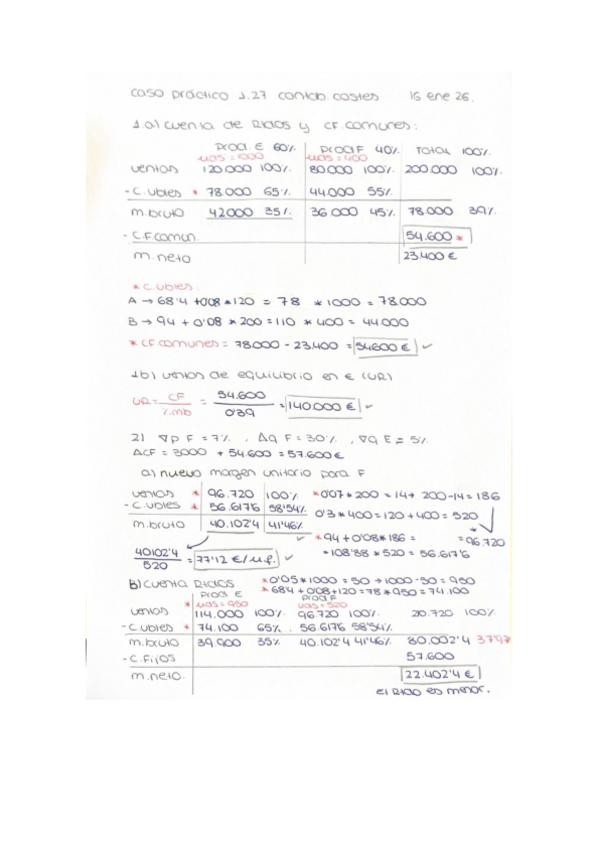 caso práctico 1.27 contab. costes 16 ene 26.
1.a) cuenta de Rtdos y CF. comunes:
Prod. E 60% Prod F 40% TOTAL 100%
uds = 1000 uds = 400
ventas 120.000 100% 80.000 100% 200.000 100%
- C. vbles * 78.000 65% 44.000 55%
m. bruto 42000 35% 36.000 45% 78.000 39%
- C.F. comun. 54.600 *
m. neto 23.400 €
* C. vbles:
A → 68'4 + 0'08 * 120 = 78 * 1000 = 78.000
B → 94 + 0'08 * 200 = 110 * 400 = 44.000
* CF comunes = 78000 - 23.400 = 54600 € ✓
1b) ventas de equilibrio en € (UR)
UR = CF / %mb = 54.600 / 0'39 = 140.000 € ✓
2) ∇p F = 7%, Δq F = 30%, ∇q E = 5%
ΔCF = 3000 + 54.600 = 57.600 €
a) nuevo margen unitario para F
ventas * 96.720 100% * 0'07 * 200 = 14 → 200 - 14 = 186
- C. vbles * 56.617'6 58'54% 0'3 * 400 = 120 + 400 = 520
m. bruto 40.102'4 41'46% = 96.720
* 94 + 0'08 * 186 =
= 108'88 * 520 = 56.617'6
40102'4 / 520 = 77'12 €/u.f. ✓
B) cuenta Rtdos * 0'05 * 1000 = 50 → 1000 - 50 = 950
* 68'4 + 0'08 * 120 = 78 * 950 = 74.100
Prod E Prod F
* uds = 950 uds = 520
ventas 114.000 100% 96.720 100% 20.720 100%
- C. vbles * 74.100 65% 56.6176 58'54%
m. bruto 39.900 35% 40.102'4 41'46% 80.002'4 37'97%
- C. Fijos 57.600
m. neto. 22.402'4 €
el Rtdo es menor.